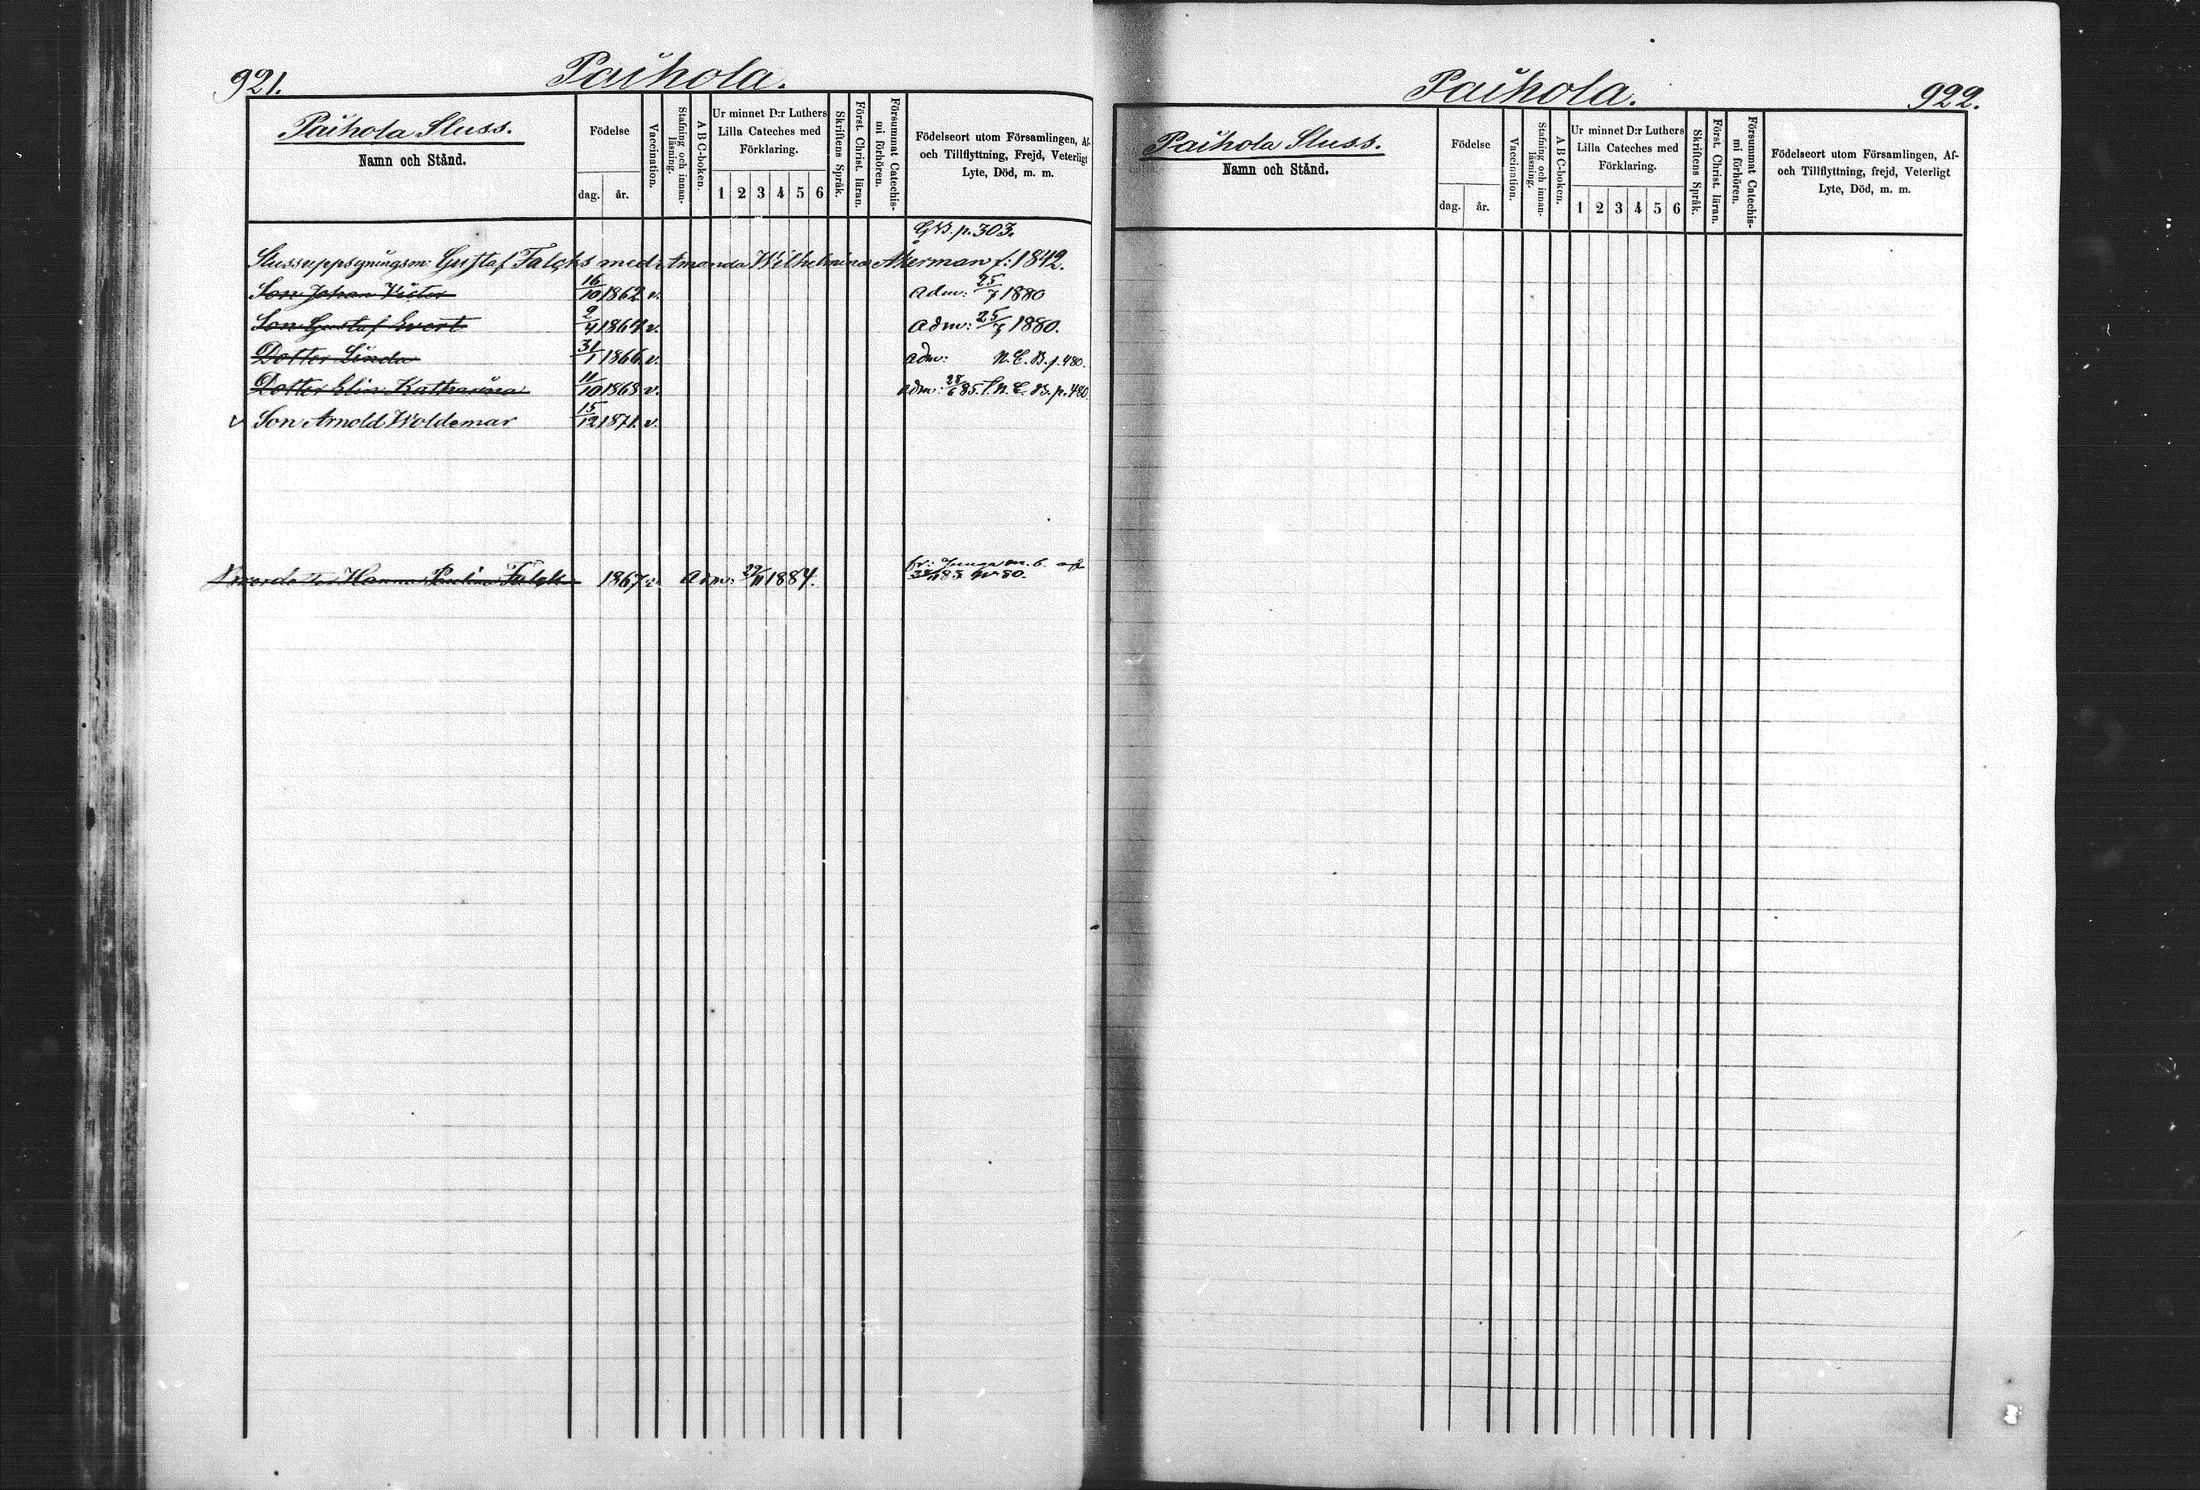 921.
Paihola.
Paihola Sluss.
Namn och Stånd.
Födelse
dag. år.
Vaccination.
Stafning och innan-
läsning.
A B C-boken.
Ur minnet D:r Luthers
Lilla Cateches med
Förklaring.
1 2 3 4 5 6
Skriftens Språk.
Först. Christ. läran.
Försummat Catechis-
mi förhören.
Födelseort utom Församlingen, Af-
och Tillflyttning, Frejd, Veterligt
Lyte, Död, m. m.
p. 303.
Slussuppsyningsm: Gustaf Falcks med Amanda Wilhelmina Åkerman f: 1842.
Son Johan Victor 16/10 1862 v. adm: 25/7 1880
Son Gustaf Evert 2/4 1864 v. adm: 25/7 1880.
Dotter Linda 31/1 1866 v. adm: N.C.B. p. 480.
Dotter Elin Katharina 11/10 1868 v. adm: 28/6 85. N.C.B. p. 480
v Son Arnold Woldemar 15/12 1871 v.
Hanna Paulina Falck 1867 v adm: 1884.
fr: m. b. af
83 No 80.
Paihola.
922.
Paihola Sluss.
Namn och Stånd.
Födelse
dag. år.
Vaccination.
Stafning och innan-
läsning.
A B C-boken.
Ur minnet D:r Luthers
Lilla Cateches med
Förklaring.
1 2 3 4 5 6
Skriftens Språk.
Först. Christ. läran.
Försummat Catechis-
mi förhören.
Födelseort utom Församlingen, Af-
och Tillflyttning, frejd, Veterligt
Lyte, Död, m. m.